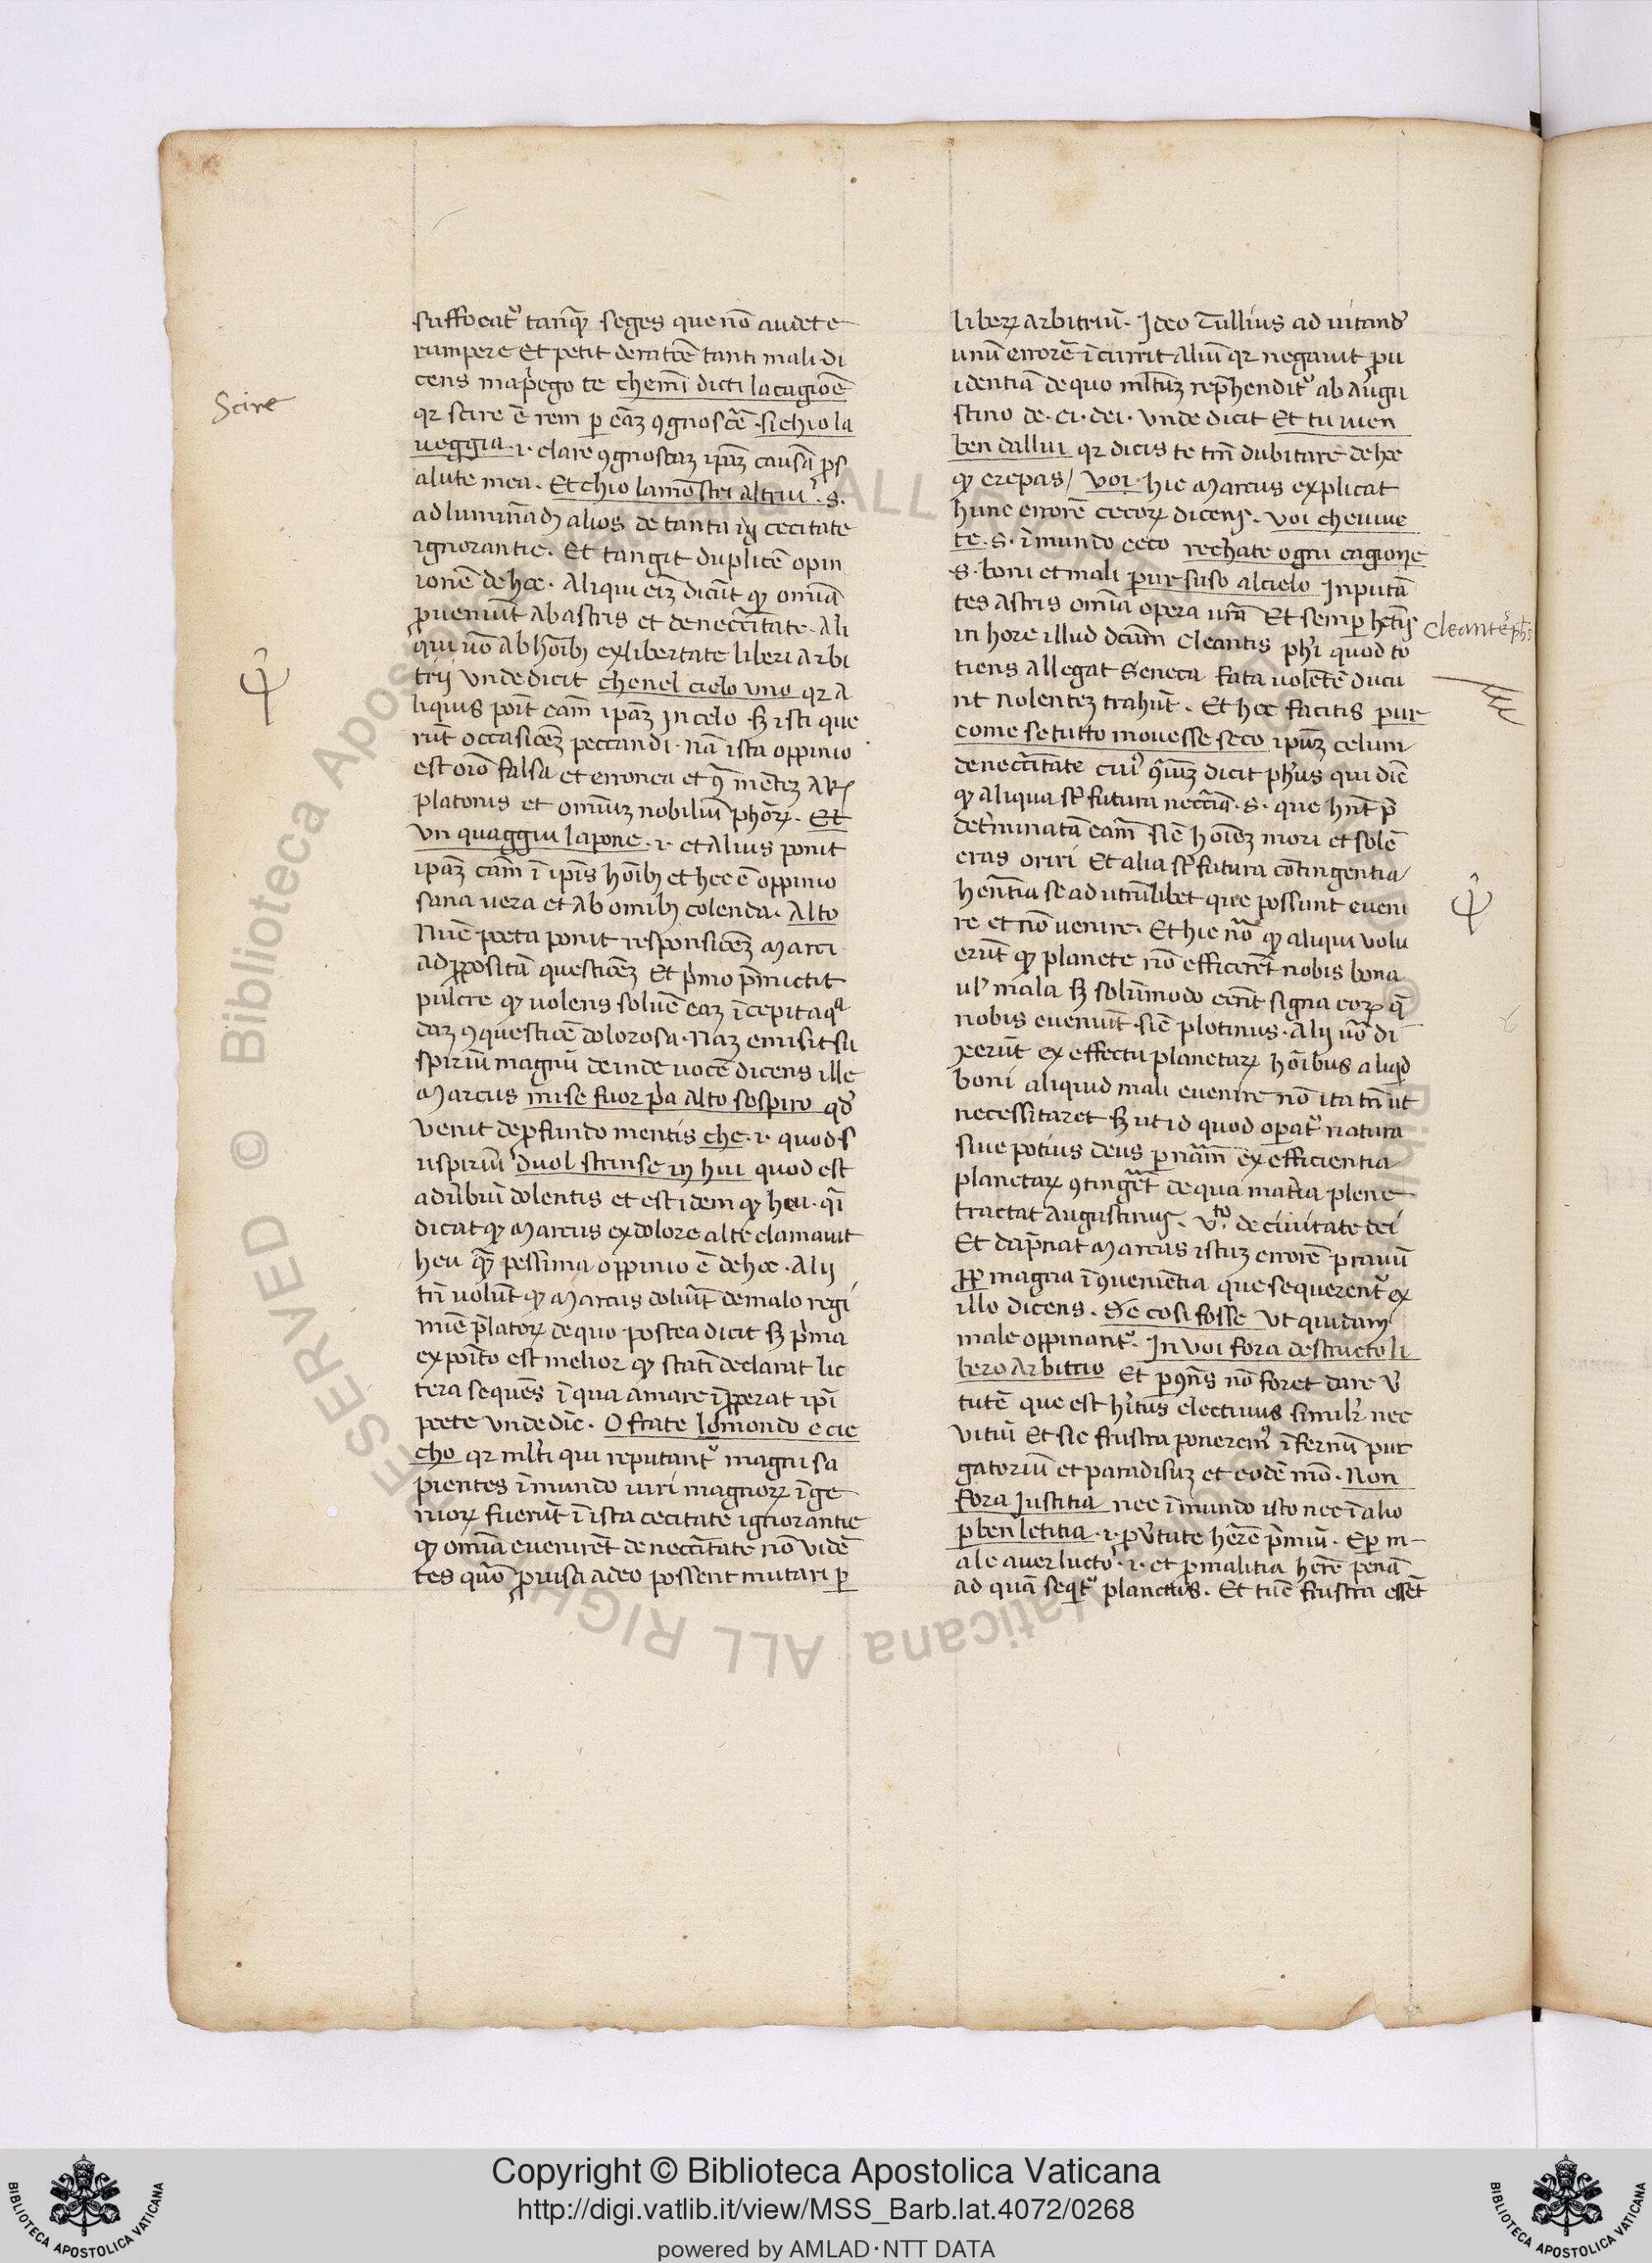 Scire
suffocat᷒ tanq̄ꝫ seges que nō audet e
rumpere et petit de rat̄ōe tanti mali di
cens ma p̄ego te chemī dicti la cagiōe
qꝛ scire ē rem ꝑ cāꝫ ꝯgnosc̄e · si chio la
veggia · i · clare ꝯgnoscaꝫ ipāꝫ causā ꝓ s
alute mea · Et chio lamōstri altrui · s ·
ad luminādꝫ alios de tanta cecitate
ignorantie · Et tangit duplicē opin
ionē de hoc · Aliqui eīꝫ dicūt ꝙ om̄ia
ꝓveniūt ab astris et de neccītate · Ali
qui ūo ab hoībꝫ ex libertate liberi arbi
trij unde dicit chenel cielo uno qꝛ a
liquis poīt cām ipāꝫ in celo sꝫ isti que
rūt occasiōeꝫ peccandi · nā ista oppinio
est oīo falsa et erronea et ꝯ̄ mēteꝫ Ar
platonis et omīuꝫ nobiliū phōꝝ · Et
un quaggiu la pone · i · et alius ponit
ipāꝫ cām ī ip̄is hoībꝫ et hec ē oppinio
sana vera et ab om̄ibꝫ colenda · Alto
Nūc poeta ponit responsiōeꝫ Marci
ad ꝓpositā questiōeꝫ Et p̄mo p̄mictit
pulcre ꝙ volens solūe eaꝫ īcepit a qa
daꝫ ꝯquestiōe dolorosa · Naꝫ emisit su
spiriū magnū deinde uocē dicens ille
Marcus mise fuor p̄a alto sospiro qd̄
venit de ꝓfundo mentis che · i · quod s
uspiriū duol strinse in hui quod est
adūbiū dolentis et est idem ꝙ heu · qī
dicat ꝙ Marcus ex dolore alte clamavit
heu q̄ꝫ pessima oppinio ē de hoc · Alij
tn̄ volūt ꝙ Marcus doluit de malo regi
mīe p̄latoꝝ de quo postea dicit sꝫ p̄ma
expoīto est melior ꝙ statī declarat lic
tera sequēs ī qua amare īꝓperat ip̄i
poete unde dīc · O frate lo mondo e cie
cho qꝛ ml̄ti qui reputant᷒ magni sa
pientes ī mundo uiri magnoꝝ īge
nioꝝ fuerūt ī ista cecitate ignorantie
ꝙ om̄ia evenirēt de neccītate nō vidē
tes quō ꝓvisa a deo possent mutari ꝑ
libeꝝ arbitriū · Ideo Tullius ad uitand᷒
unū errorē īcurrit aliū qꝛ negavit ꝓu
identiā de quo ml̄tuꝫ rep̄hendit᷒ ab augu
stino de · ci · dei · unde dicit Et tu vien
ben dallui qꝛ dicis te tn̄ dubitare de hoc
ꝙ crepas / Voi · hic Marcus explicat
hunc errorē cecoꝝ dicens · Voi che uive
te · s · ī mundo ceco rechate ogni cagione
· s · boni et mali pur suso al cielo Inputā
tes astris om̄ia opera ur̄a Et semꝑ hētis
in hore illud dc̄um Cleantis phi quod to
tiens allegat Seneca fata volētē ducu
nt nolenteꝫ trahūt · Et hec facitis pur
come se tutto movesse seco ipūꝫ celum
de neccītate cui᷒ ꝯ̄iuꝫ dicit ph̄us qui dīc
ꝙ aliqua st̄ futura neccīa · s · que hn̄t p̄
det̄minatā cām sic̄ hoīeꝫ mori et solē
cras oriri Et alia st̄ futura cōtingentia
hēntia se ad utrūlibet que possunt eveni
re et nō venire · Et hic nō ꝙ aliqui volu
erūt ꝙ planete nō efficerēt nobis bona
ul̄ mala sꝫ solūmodo eēnt signa eoꝝ q̄
nobis eveniūt · sic̄ plotinus · Alij uō di
xerūt ex effectu planetaꝝ hoībus aliqd
boni aliquid mali evenire nō ita tn̄ ut
necessitaret sꝫ ut id quod opat᷒ natura
sive potius deus ꝑ nām ex efficientia
planetaꝝ ꝯtinḡet de qua mat̄ia plene
tractat Augustinus · Vto · de civitate dei
Et dāpnat Marcus istuꝫ errorē pravū
ꝓp̄ magna īꝯvenientia que sequerent᷒ ex
illo dicens · Se cosi fosse Ut quidam
male oppinant᷒ · In voi fora destructo li
bero arbitrio Et ꝑ ꝯn̄s nō foret dare v̄
tutē que est hītus electivus similr̄ nec
vitiū Et sic frustra ponerem᷒ īfernū pur
gatoriū et paradisuꝫ et eodē mō · Non
fora Justitia nec ī mundo isto nec ī alio
ꝑ ben letitia · i · ꝑ v̄tute hēre p̄miū · E ꝑ m
ale aver lucto · i · et ꝑ malitia hēre penā
ad quā seqt᷒ planctus · Et tūc frustra essēt
Cleantes phs
Copyright © Biblioteca Apostolica Vaticana
http://digi.vatlib.it/view/MSS_Barb.lat.4072/0268
powered by AMLAD·NTT DATA
BIBLIOTECA APOSTOLICA VATICANA
BIBLIOTECA APOSTOLICA VATICANA